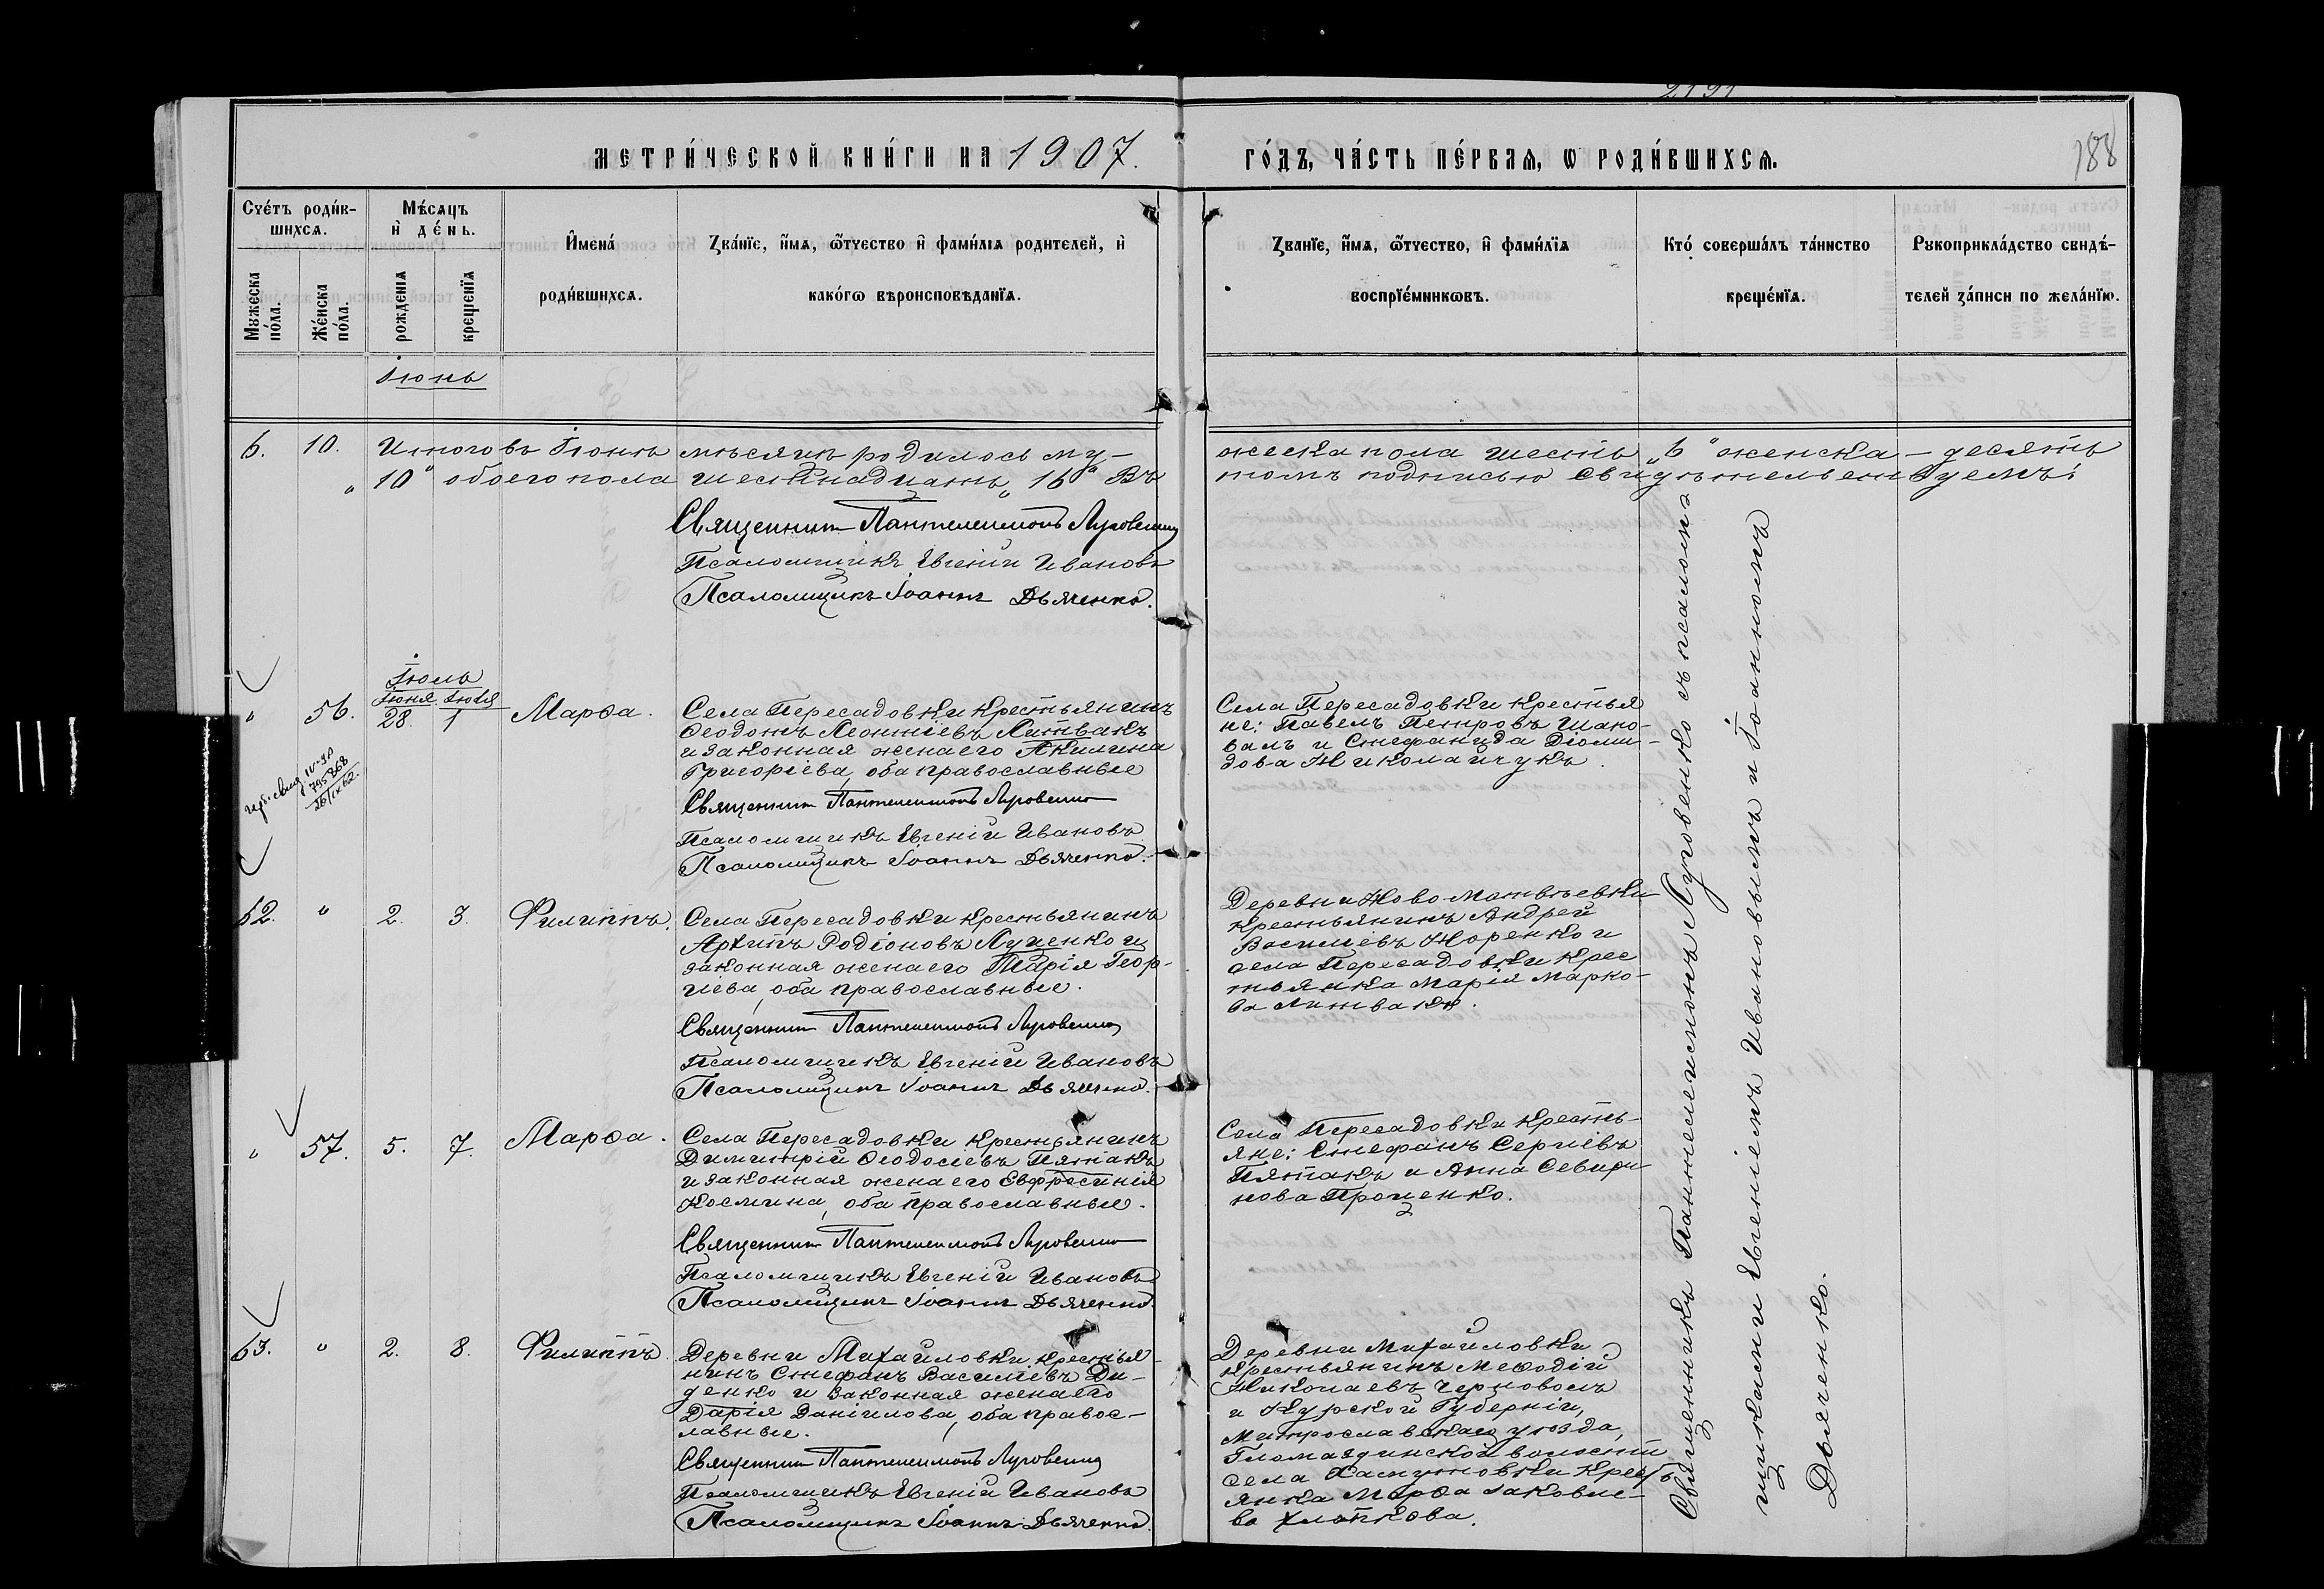 2191
188
МЕТРИ́ЧЕСКОЙ КНИ́ГИ НА 1907.
ГО́ДЪ, ЧА́СТЬ ПЕ́РВАѦ, Ѡ РОДИ́ВШИХСѦ.
Сче́тъ роди́в-
шихсѧ.
Мѣ́сѧцъ
и҆ де́нь.
Мꙋжеска
по́ла.
Же́нска
по́ла.
рожденїѧ
крещенїѧ
И҆мена́
роди́вшихсѧ.
Зва́нїе, и҆́мѧ, ѻ҆́тчество и҆ фами́лїѧ родителей, и҆
како́гѡ вѣроисповѣданїѧ.
Званїе, и҆́мѧ, ѻ҆́тчество, и҆ фами́лїѧ
воспрїе́мникѡвъ.
Кто́ соверша́лъ та́инство
креще́нїѧ.
Рꙋкоприкла́дство свидѣ́-
телей за́писи по жела́нїю.
Іюнь
6. 10. Итого въ Іюнѣ мѣсяцѣ родилось му-
жеска пола шесть „6“ женска - десять
„10“ обоего пола шестнадцать „16“ Въ
томъ подписью свидѣтельствуемъ:
Священникъ Пантелеимонъ Луговенко
Псаломщикъ Евгеній Ивановъ
Псаломщикъ Іоаннъ Дьяченко.
Іюль
Іюня Іюля
" 56. 28. 1 Марѳа.
Села Пересадовки крестьянинъ
Ѳеодотъ Леонтіевъ Литвакъ
и законная жена его Акилина
Григоріева, оба православные
Священникъ Пантелеимонъ Луговенко
Псаломщикъ Евгеній Ивановъ
Псаломщикъ Іоаннъ Дьяченко.
795868
Села Пересадовки крестья
не: Павелъ Петровъ Шапо-
валъ и Стефанида Діоми-
дова Николайчукъ.
62. " 2. 3. Филиппъ.
Села Пересадовки крестьянинъ
Архипъ Родіоновъ Луценко и
законная жена его Марія Геор-
гіева, оба православные.
Священникъ Пантелеимонъ Луговенко
Псаломщикъ Евгеній Ивановъ
Псаломщикъ Іоаннъ Дьяченко.
Деревни Ново-Матвѣевки
крестьянинъ Андрей
Василіевъ Норенко и
села Пересадовки крес
тьянка Марія Марко-
ва Литвакъ.
" 57. 5. 7. Марѳа.
Села Пересадовки крестьянинъ
Димитрій Ѳеодосіевъ Пятакъ
и законная жена его Евфросинія
Космина, оба православные.
Священникъ Пантелеимонъ Луговенко
Псаломщикъ Евгеній Ивановъ
Псаломщикъ Іоаннъ Дьяченко.
Села Пересадовки кресть-
яне: Стефанъ Сергіевъ
Пятакъ и Анна Севири
нова Проценко.
63. " 2. 8. Филиппъ.
Деревни Михайловки крестья-
нинъ Стефанъ Василіевъ Ди-
денко и законная жена его
Дарія Даніилова, оба правос-
лавные.
Священникъ Пантелеимонъ Луговенко
Псаломщикъ Евгеній Ивановъ
Псаломщикъ Іоаннъ Дьяченко.
Деревни Михайловки
крестьянинъ Меѳодій
Николаевъ Черноволъ
и Курской Губерніи,
уѣзда,
волости
села крест
янка Марѳа Іаковле-
ва Хлопкова.
Священникъ Пантелеимонъ Луговенко съ псалом-
щиками Евгеніемъ Ивановымъ и Іоанномъ
Дьяченко.